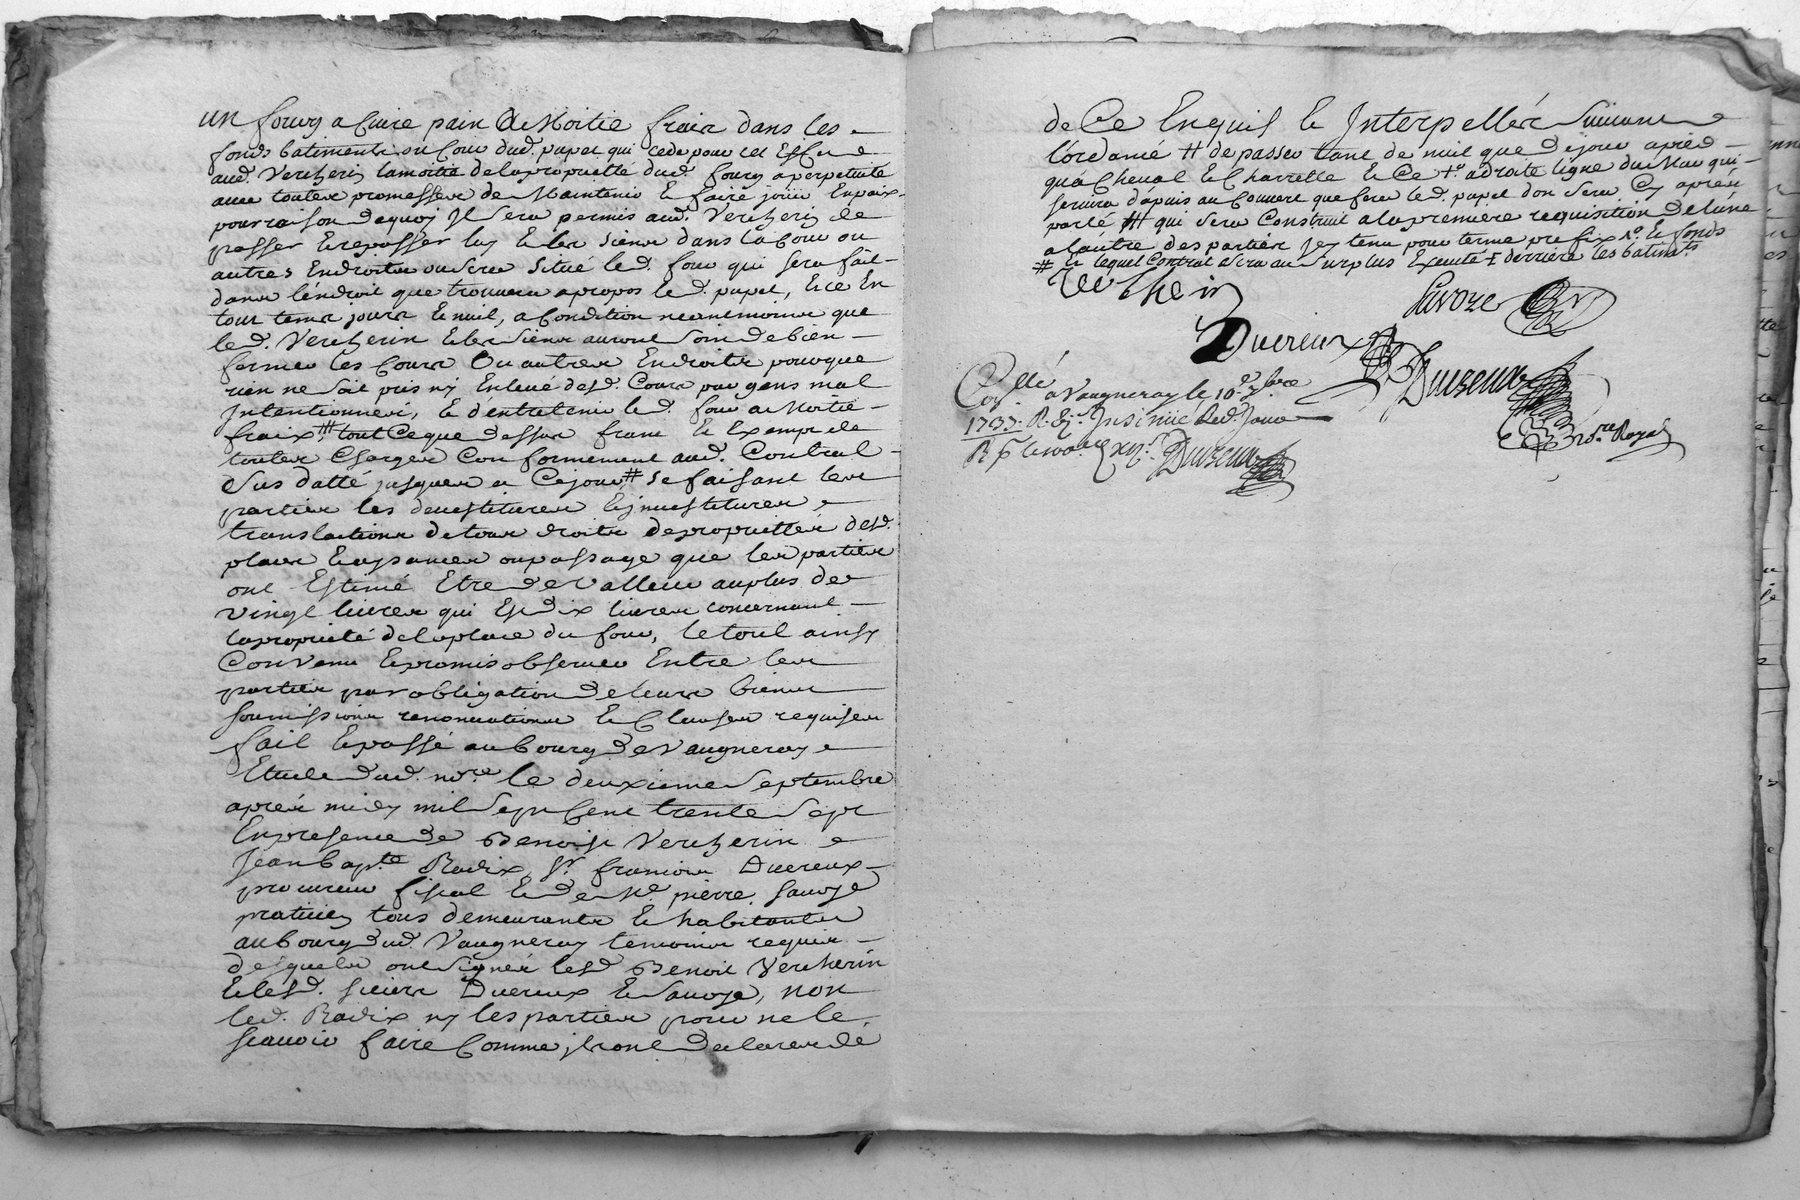 un fourg a cuire pain a Moitié fraix dans les
fonds batiments ou Cour dud. papet qui cede pour cet Effet
aud. Vercherin la moitié de la proprietté dud. fourg a perpetuité
avec toutes promesses de Maintenir & faire jouir En paix
pour raison dequoy Il sera permis aud. Vercherin de
passer & repasser luy & les siens dans la Cour ou
autres Endroits ou sera situé led. four qui sera fait
dans l'éndroit que trouvera apropos led. papet, & ce En
tout tems jours & nuit, a Condition neantmoins que
led. Vercherin & les siens auront soin de bien
fermer les Cours Ou autres Endroits pour que
rien ne soit pris ny Enlevé desd. Cours par gens mal
Intentionnés, & d'éntretenir led. four a Moitié
fraix, ### tout Ce que dessus franc & Exempt de
toutes Charges Conformement aud. Contrat
Sus datté jusques a Ce jour, # se faisant les
parties les devestitures & jnvestitures
translations de tous droits de proprietté desd.
places & aysances ou passage que les parties
ont Estimé Etre de Valleur au plus de
vingt livres qui Est dix livres concernant
la proprieté de la place du four, le tout ainsy
Convenu & promis observer Entre les
parties par obligation de leurs biens
soumissions renonciations & Clauses requises
fait & passé au bourg de Vaugneray
Etude dud. no.re le deuxieme Septembre
aprés midy mil Sept Cent trente Sept
En presence de Benoist Vercherin
Jean bap.te Radix, S.r francois Duereux
procureur fiscal & de M.e pierre Savoye
praticien tous demeurants & habitants
au bourg dud. Vaugneray temoins requis
desquels ont signés lesd. Benoit Vercherin
& lesd. sieurs Duereux & Savoye, non
led. Radix ny les parties pour ne le
scavoir faire Comme jls ont declarer dé
de Ce Enquis & Interpellés Suivant
l'órdonné # de passer tant de nuit que de jour aprés
qu'á Cheval & Charrette & Ce adroite ligne du Mur qui
servira d'ápuis au Couvert que fera led. papet don sera Cy aprés
parlé ### qui sera Construit a la premiere requisition de l'úne
a l'autre des parties jcy tenu pour terme prefix & fonds
# & lequel Contrat sera au Surplus Executé derriere les batim.ts
Vercherin
Savoye
Duereux
Duzeux
no.re Royal
Con.llé a Vaugneray le 10.e 7.bre
1737. R.
Duzeux